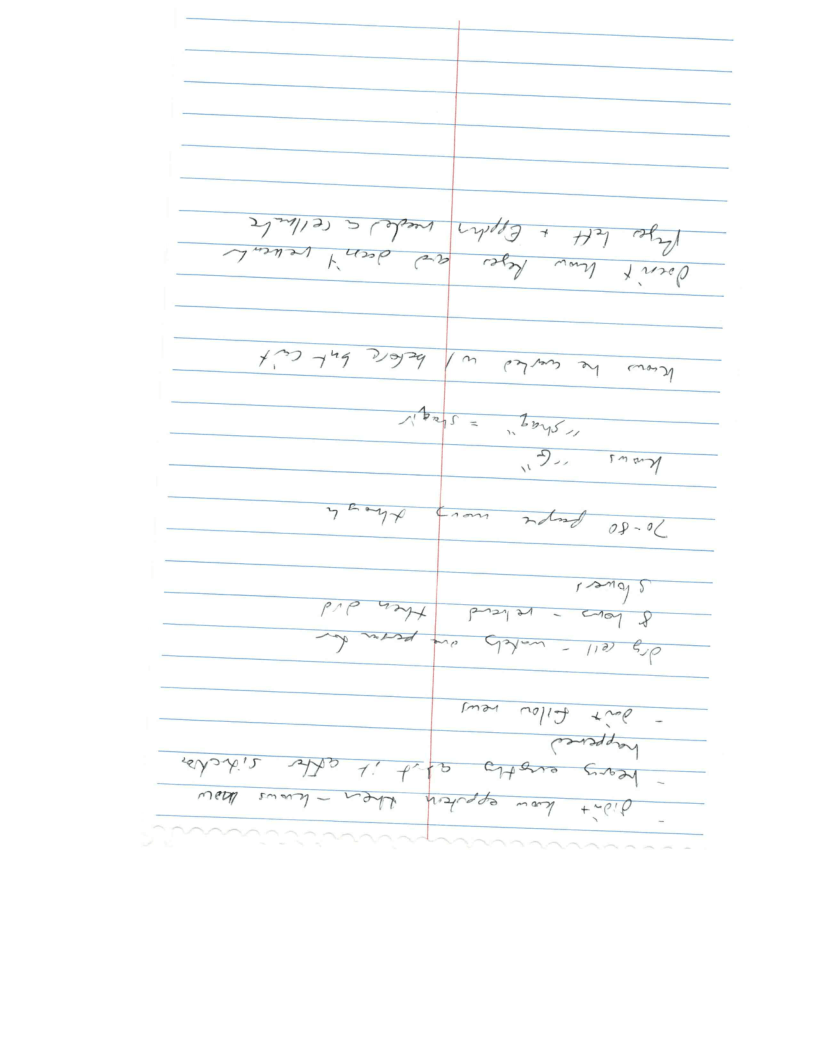 - didn't know eppstein then - knows now
- heavy everything about it after situation
happened
- don't follow news
dry cell - watch one person for
8 hours - relieved then did
showers
70-80 people moved through
knows "G"
"shaq" = shaq
knows he worked w/ before but can't
Doesn't know Reyes and doesn't rememb
Reyes left + Eppstein needed a cellmate